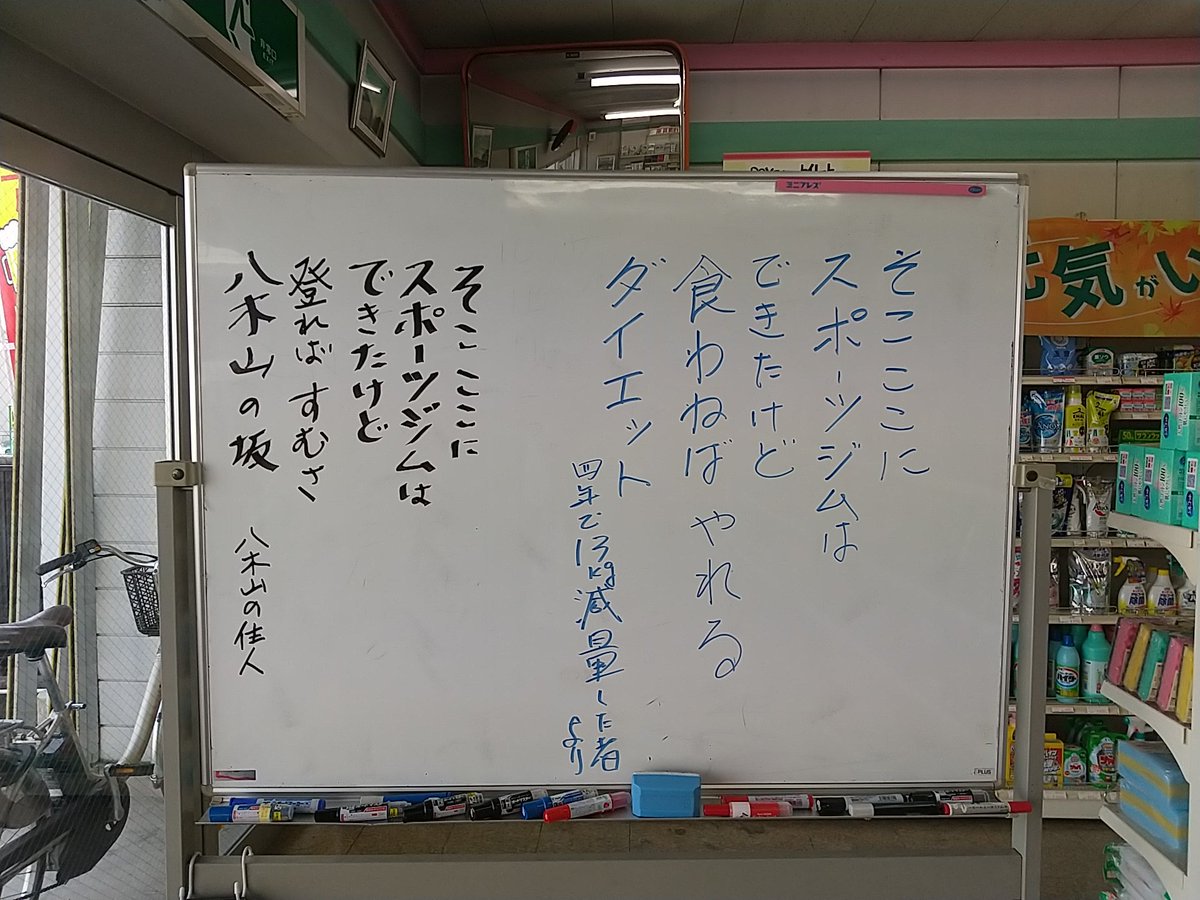 そこここに
スポーツジムは
できたけど
食わねば やれる
ダイエット
四年で13kg減量した者
より
そこここに
スポーツジムは
できたけど
登れば すむさ
八木山の坂
八木山の住人
ミニプレズ
トイレット
元気がい
非常口
PLUS
除菌
ハイター